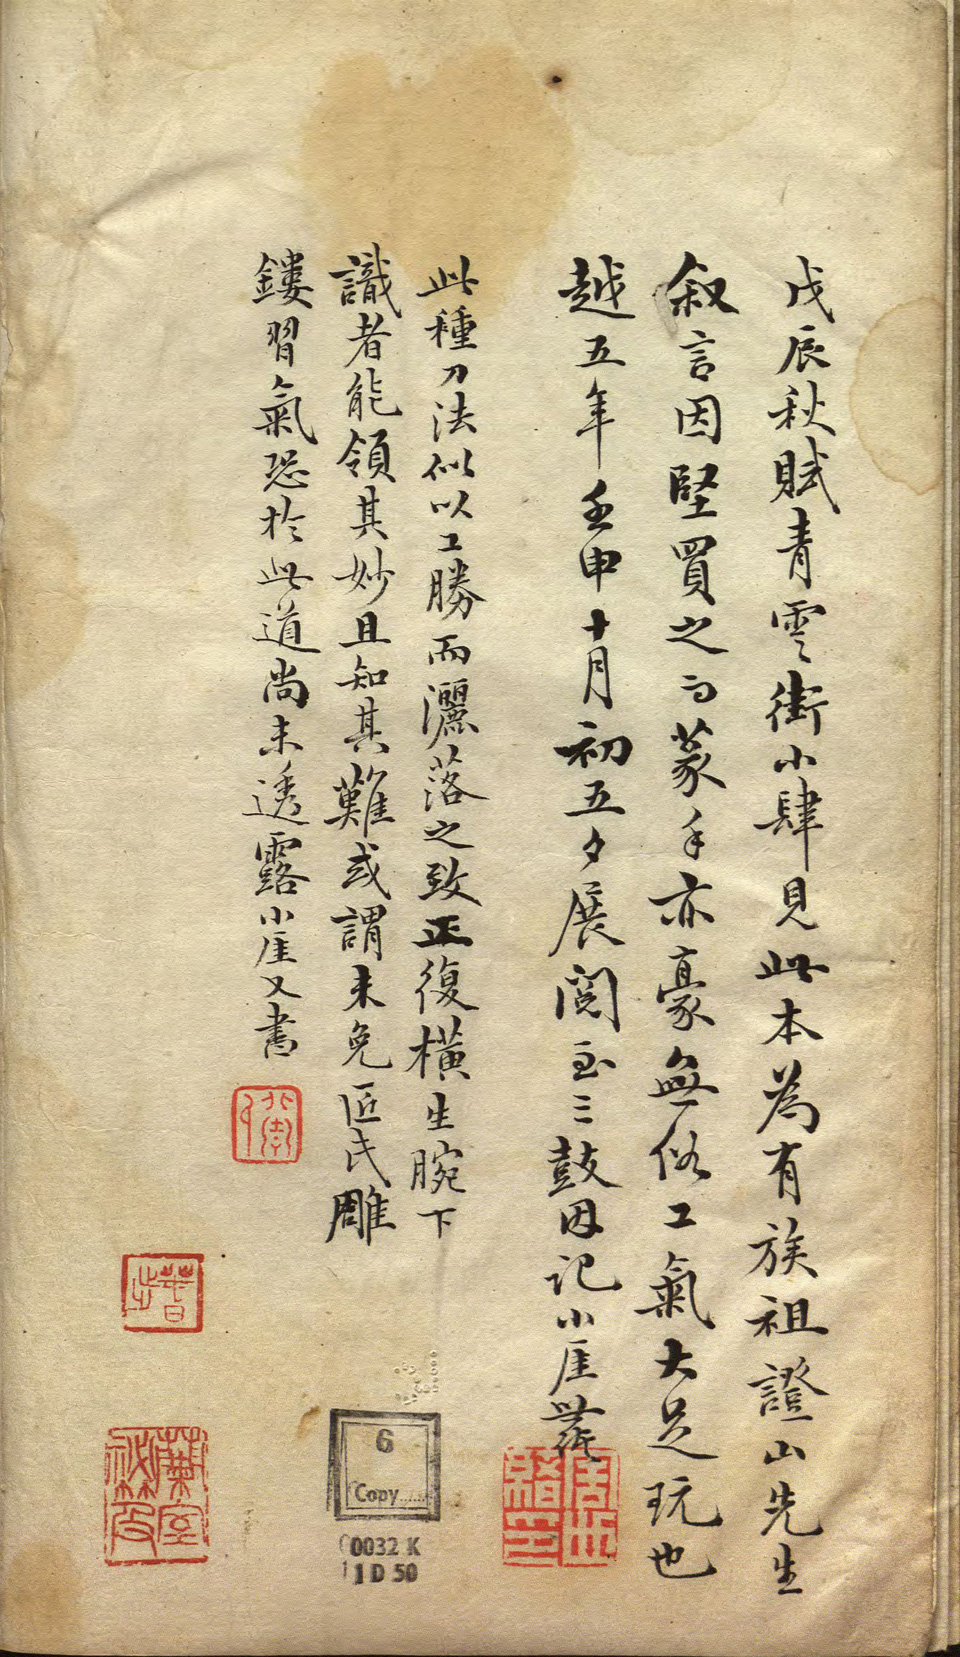 戊辰秋賦青雲街小肆見此本為有族祖證山先生
叙言因堅買之而篆手亦豪無俗工氣大足玩也
越五年壬申十月初五夕展閲至三鼓因記小厓
此種刀法似以工勝而灑落之致正復橫生腕下
識者能領其妙且知其難或謂未免匠氏雕
鏤習氣恐於此道尚未透露小厓又書
6
Copy
0032 K
11 D 50